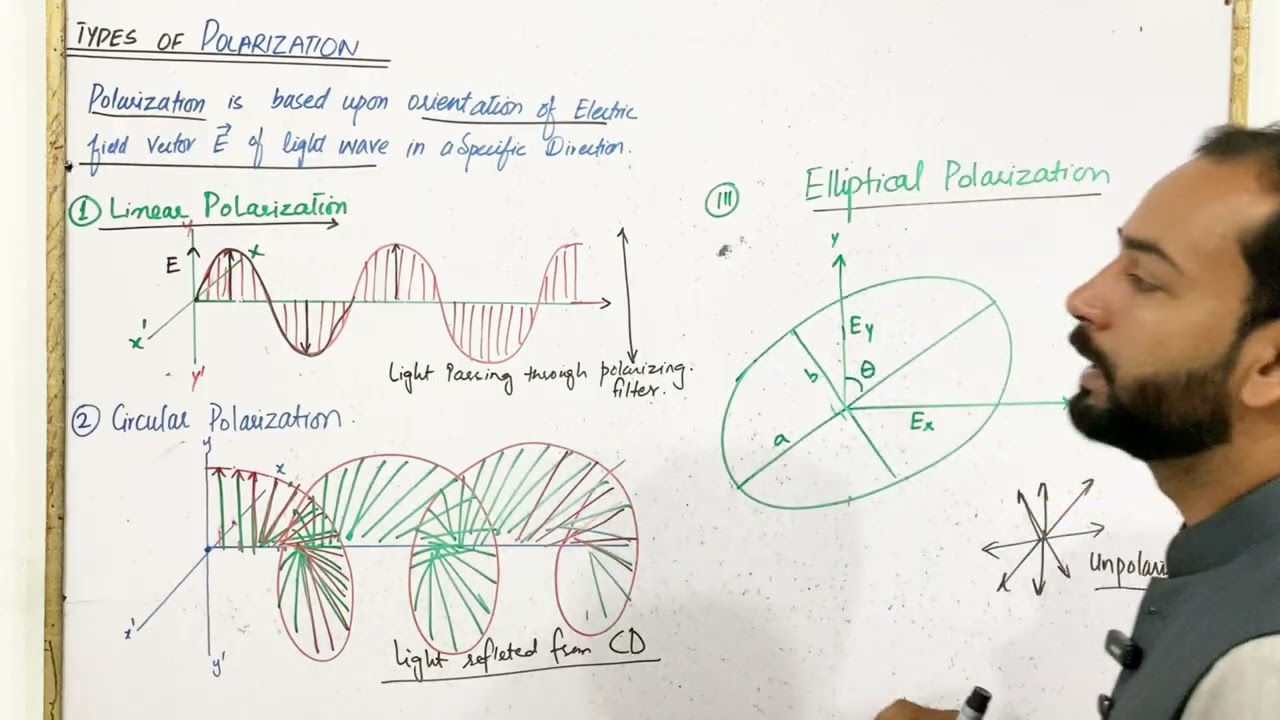 TYPES OF POLARIZATION
Polarization is based upon orientation of Electric
field vector E⃗ of light wave in a Specific Direction.
① Linear Polarization
y
E
x
x'
y'
Light Passing through polarizing
filter.
② Circular Polarization.
y
x
x'
y'
light refleted from CD
III Elliptical Polarization
y
Ey
θ
b
a
Ex